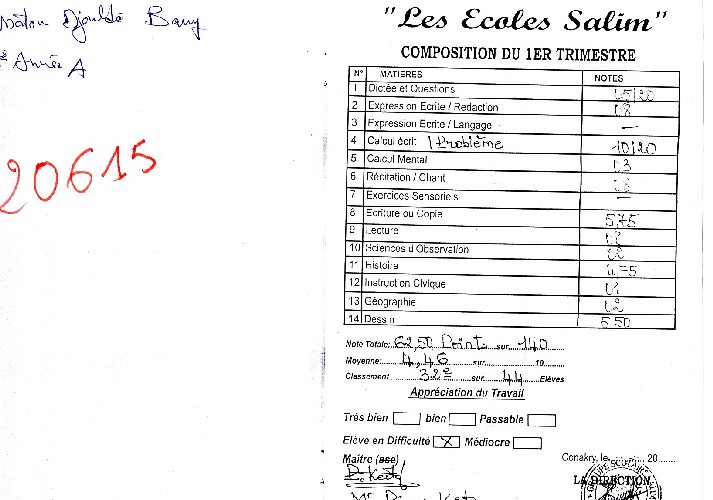 Djouldé Barry
Année A
20615
"Les Ecoles Salim"
COMPOSITION DU 1ER TRIMESTRE
N° MATIERES NOTES
1 Dictée et Questions /20
2 Expression Ecrite / Redaction 08
3 Expression Ecrite / Langage —
4 Calcul écrit / Problème 10/20
5 Calcul Mental 03
6 Récitation / Chant
7 Exercices Sensoriels —
8 Ecriture ou Copie 5,75
9 Lecture
10 Sciences d'Observation
11 Histoire 4,75
12 Instruction Civique
13 Géographie 02
14 Dessin 5,50
Note Totale: 62,50 Points sur 140
Moyenne: 4,46 sur 10
Classement 32e sur 44 Elèves
Appréciation du Travail
Très bien bien Passable
Elève en Difficulté X Médiocre
Maitre (sse) Conakry, le 20
LA DIRECTION